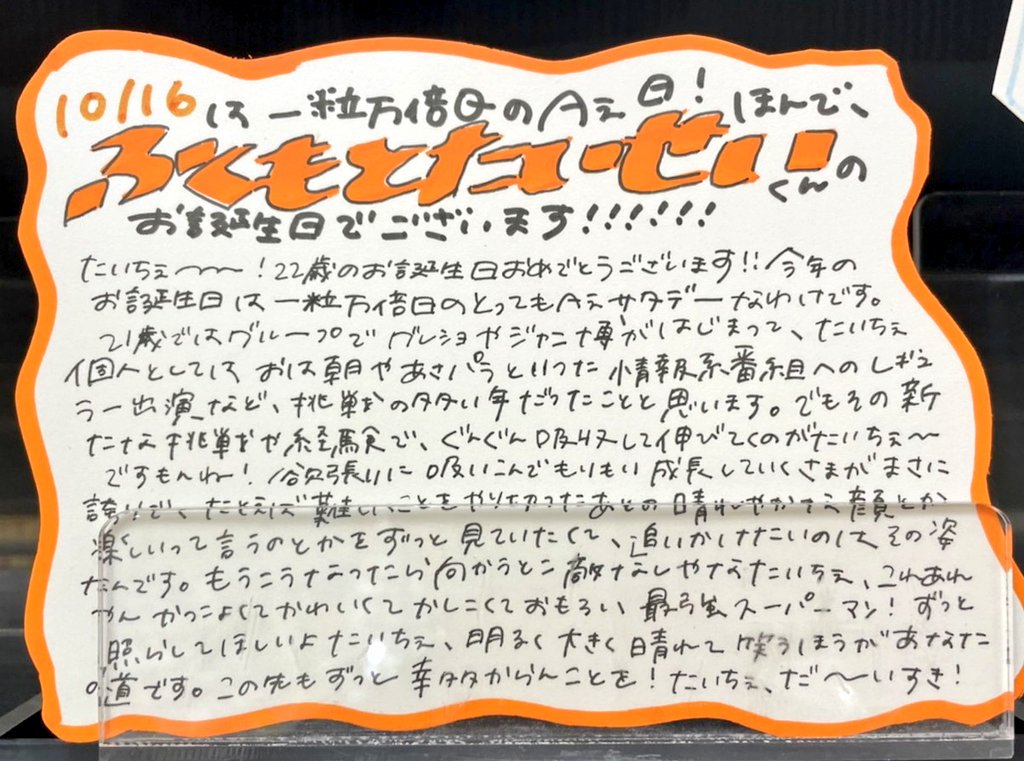 10/16は一粒万倍日のAぇ日！ほんで、
ふくもとたいせいくんの
お誕生日でございます!!!!!!
たいちぇ〜〜！22歳のお誕生日おめでとうございます!!今年の
お誕生日は一粒万倍日のとってもAぇサタデーなわけです。
21歳ではグループでグレショやジャニ博がはじまって、たいちぇ
個人としては おは朝やあさパラといった 情報系番組へのレギュ
ラー出演など、挑戦の多い年だったことと思います。でもその新
たな挑戦や経験で、ぐんぐん吸収して伸びてくのがたいちぇ〜
ですもんね！欲張りに吸いこんでもりもり成長していくさまがまさに
誇りで、たとえば難しいことをやり切ったあとの晴れやかな顔とか
楽しいって言うのとかをずっと見ていたくて、追いかけたいのは その姿
なんです。もうこうなったら向かうとこ敵なしやなたいちぇ、これあれ
やん かっこよくてかわいくてかしこくておもろい 最強スーパーマン！ずっと
照らしてほしいよたいちぇ、明るく大きく晴れて笑うほうがあなた
の道です。この先もずっと幸多からんことを！たいちぇ、だ〜いすき！